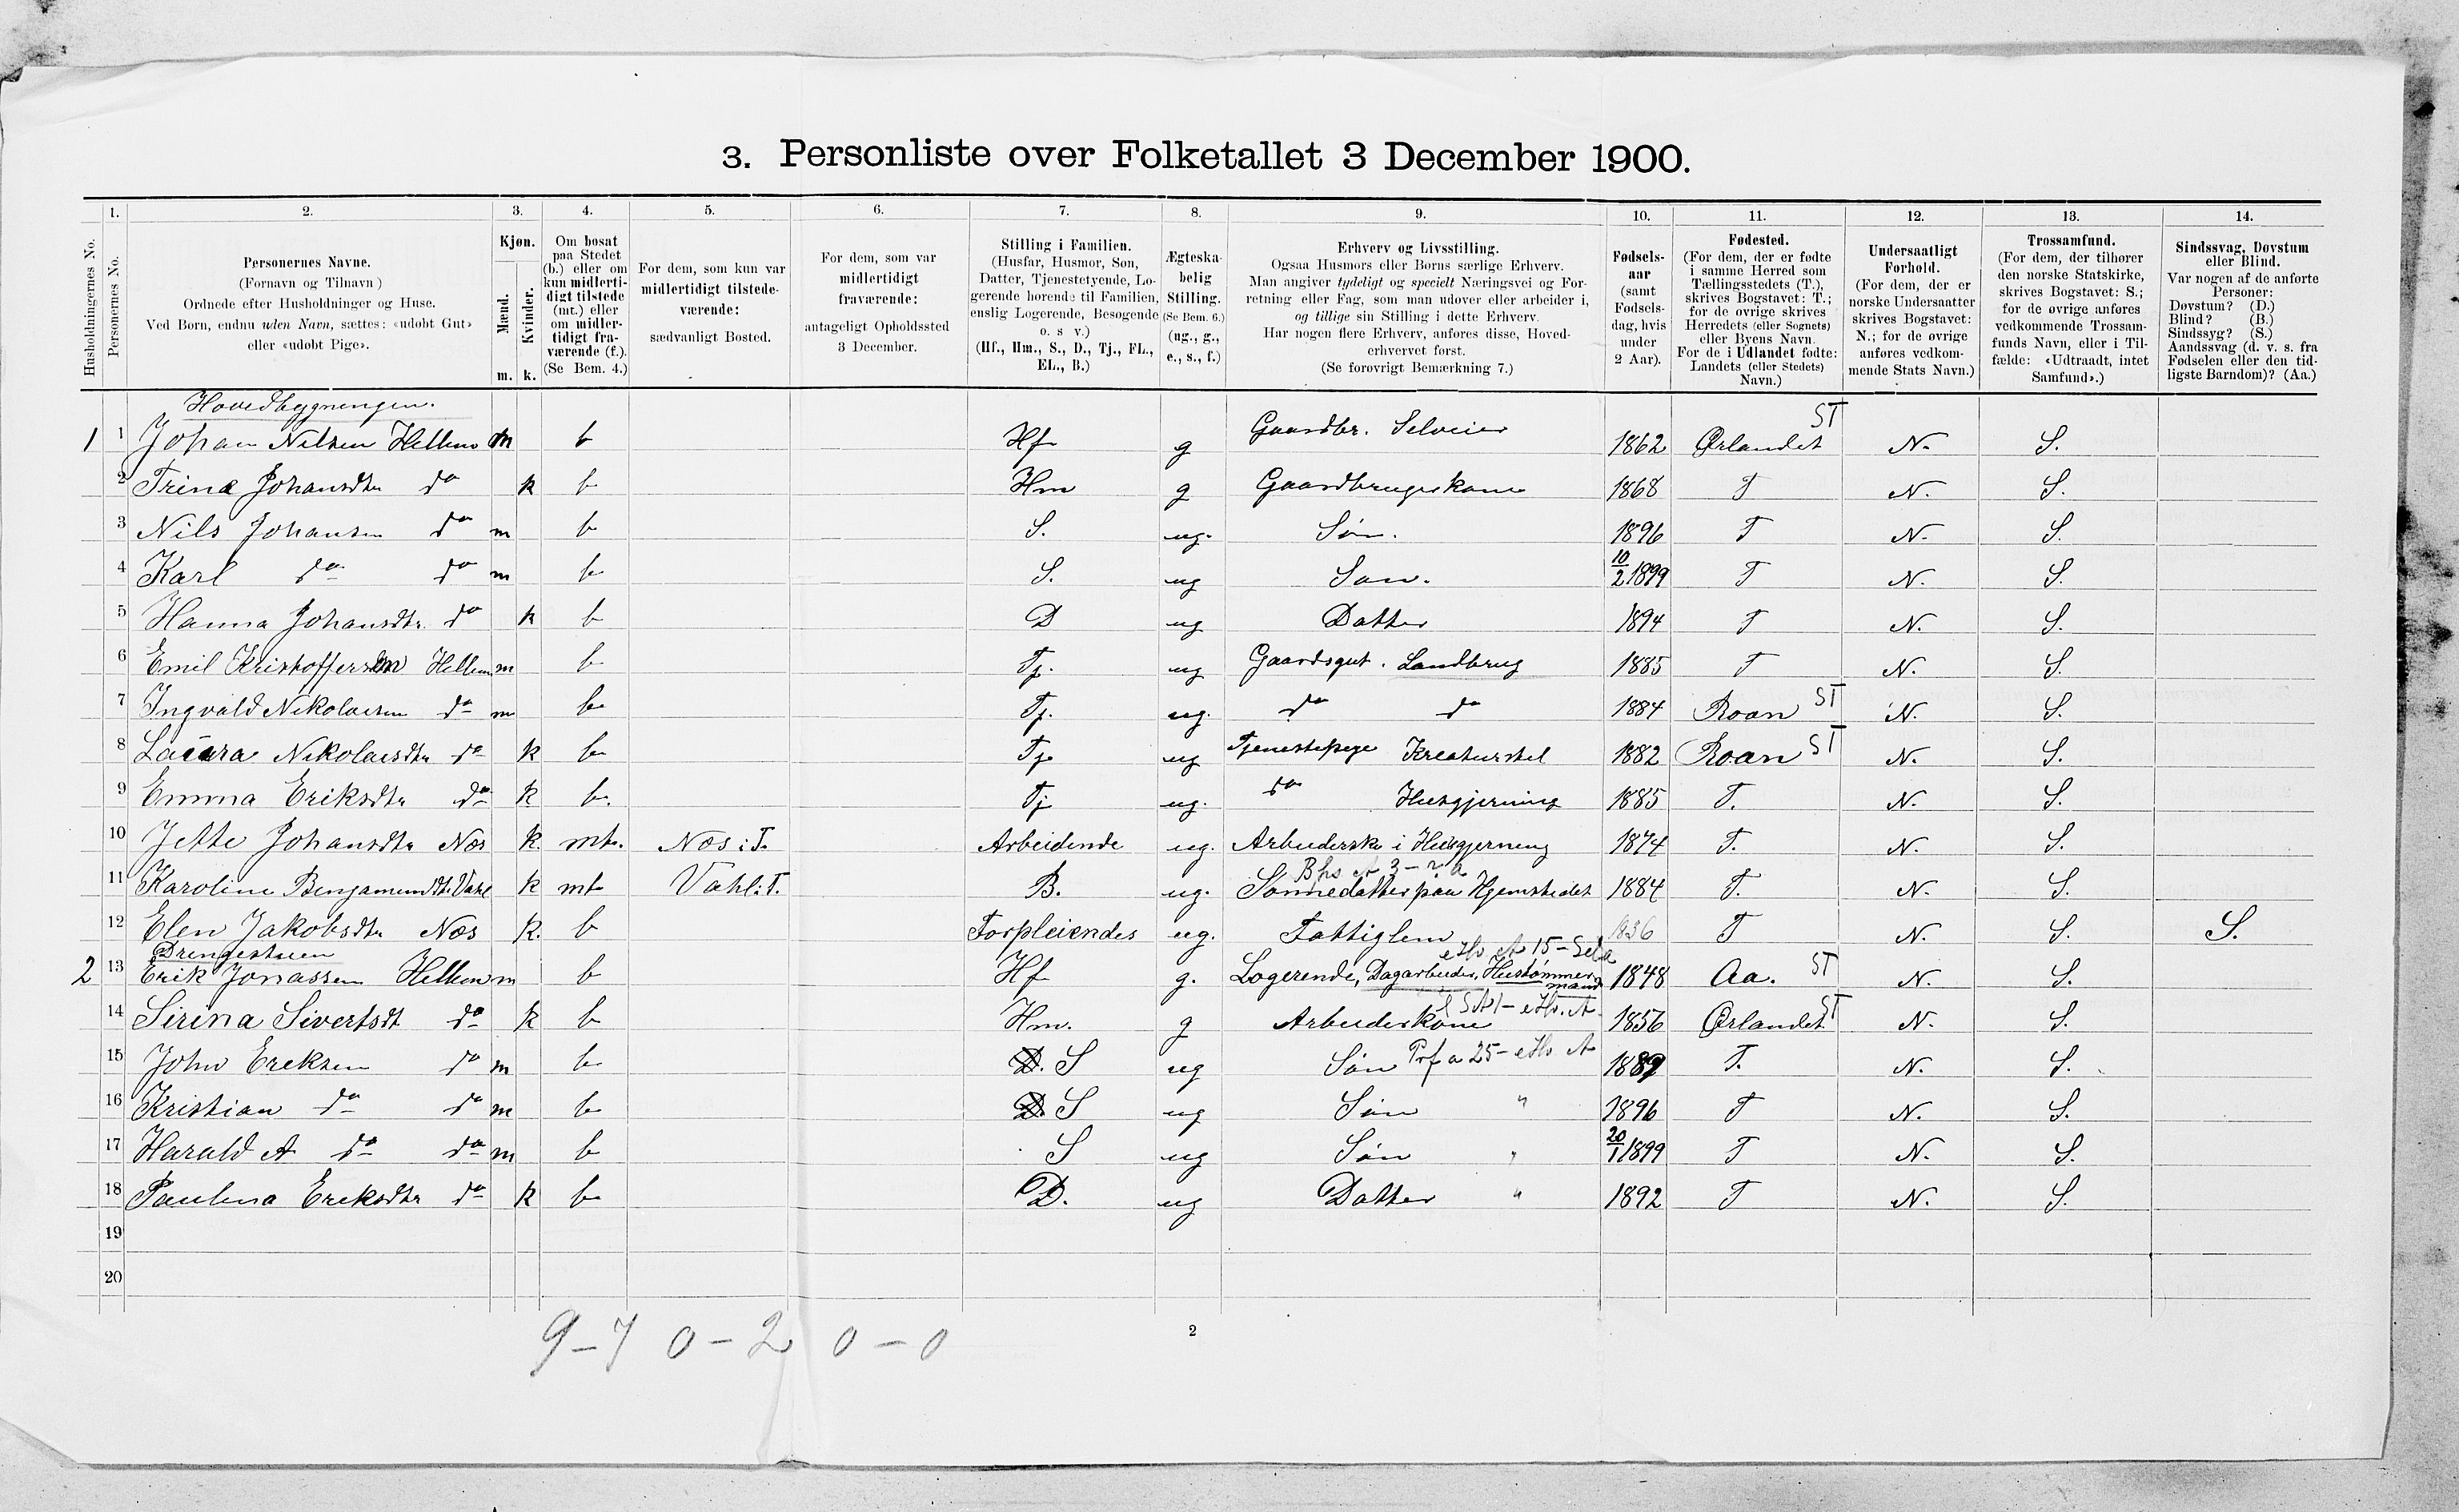 3. Personliste over Folketallet 3 December 1900.
1. 2. 3. 4. 5. 6. 7. 8. 9. 10. 11. 12. 13. 14.
Husholdningernes No.
Personernes No.
Personernes Navne.
(Fornavn og Tilnavn)
Ordnede efter Husholdninger og Huse.
Ved Børn, endnu uden Navn, sættes: «udøbt Gut»
eller «udøbt Pige».
Kjøn.
Mænd.
Kvinder.
m. k.
Om bosat
paa Stedet
(b.) eller om
kun midlerti-
digt tilstede
(mt.) eller
om midler-
tidigt fra-
værende (f.).
(Se Bem. 4.)
For dem, som kun var
midlertidigt tilstede-
værende:
sædvanligt Bosted.
For dem, som var
midlertidigt
fraværende:
antageligt Opholdssted
3 December.
Stilling i Familien.
(Husfar, Husmor, Søn,
Datter, Tjenestetyende, Lo-
gerende hørende til Familien,
enslig Logerende, Besøgende
o. s v.)
(Hf., Hm., S., D., Tj., FL.,
EL., B.)
Ægteska-
belig
Stilling.
(Se Bem. 6.)
(ug., g.,
e., s., f.)
Erhverv og Livsstilling.
Ogsaa Husmors eller Børns særlige Erhverv.
Man angiver tydeligt og specielt Næringsvei og For-
retning eller Fag, som man udøver eller arbeider i,
og tillige sin Stilling i dette Erhverv.
Har nogen flere Erhverv, anføres disse, Hoved-
erhvervet først.
(Se forøvrigt Bemærkning 7.)
Fødsels-
aar
(samt
Fødsels-
dag, hvis
under
2 Aar).
Fødested.
(For dem, der er fødte
i samme Herred som
Tællingsstedets (T.),
skrives Bogstavet: T.;
for de øvrige skrives
Herredets (eller Sognets)
eller Byens Navn.
For de i Udlandet fødte:
Landets (eller Stedets)
Navn.)
Undersaatligt
Forhold.
(For dem, der er
norske Undersaatter
skrives Bogstavet:
N.; for de øvrige
anføres vedkom-
mende Stats Navn.)
Trossamfund.
(For dem, der tilhører
den norske Statskirke,
skrives Bogstavet: S.;
for de øvrige anføres
vedkommende Trossam-
funds Navn, eller i Til-
fælde: «Udtraadt, intet
Samfund».)
Sindssvag, Døvstum
eller Blind.
Var nogen af de anførte
Personer:
Døvstum? (D.)
Blind? (B.)
Sindssyg? (S.)
Aandssvag (d. v. s. fra
Fødselen eller den tid-
ligste Barndom)? (Aa.)
Hovedbygningen.
1 1 Johan Nilsen Hellem m b Hf g Gaardbr. Selveier 1862 Ørlandet ST N. S.
2 Trine Johansdtr do k b Hm g Gaardbrugerkone 1868 T N. S.
3 Nils Johansen do m b S. ug. Søn. 1896 T N. S.
4 Karl do do m b S. ug Søn. 10/2 1899 T N. S.
5 Hanna Johansdtr. do k b D ug Datter 1894 T N. S.
6 Emil Kristoffersen Hellem m b Tj. ug Gaardsgut. Landbrug 1885 T N. S.
7 Ingvald Nikolaisen do m b Tj. ug. do do 1884 Roan ST N. S.
8 Laura Nikolaisdtr do k b Tj. ug Tjenestepige Kreaturstel 1882 Roan ST N. S.
9 Emma Eriksdtr do k b. Tj ug. do Husgjerning 1885 T. N. S.
10 Jette Johansdtr Næs k. mt. Næs i T. Arbeidende ug. Arbeiderske i Husgjerning 1874 T. N. S.
11 Karoline Benjaminsdtr. Vahl k mt Vahl. T. B. ug. Sønnedatter paa Hjemstedet 1884 T. N. S.
12 Elen Jakobsdtr Næs k. b Forpleiendes ug. Fattiglem 1836 T N. S. S.
Drengestuen
2 13 Erik Jonassen Hellem m b Hf g. Logerende, Dagarbeider, Hustømmermand 1848 Aa. ST N. S.
14 Sirina Sivertsdt do k b Hm. g Arbeiderkone 1856 Ørlandet ST N. S.
15 John Eriksen do m b S ug Søn 1889 T. N. S.
16 Kristian do do m b S ug Søn " 1896 T N. S.
17 Harald A do do m b S ug Søn " 20/1 1899 T N. S.
18 Paulina Eriksdtr do k b D. ug Datter " 1892 T N. S.
19
20
9-7 0-2 0-0
2